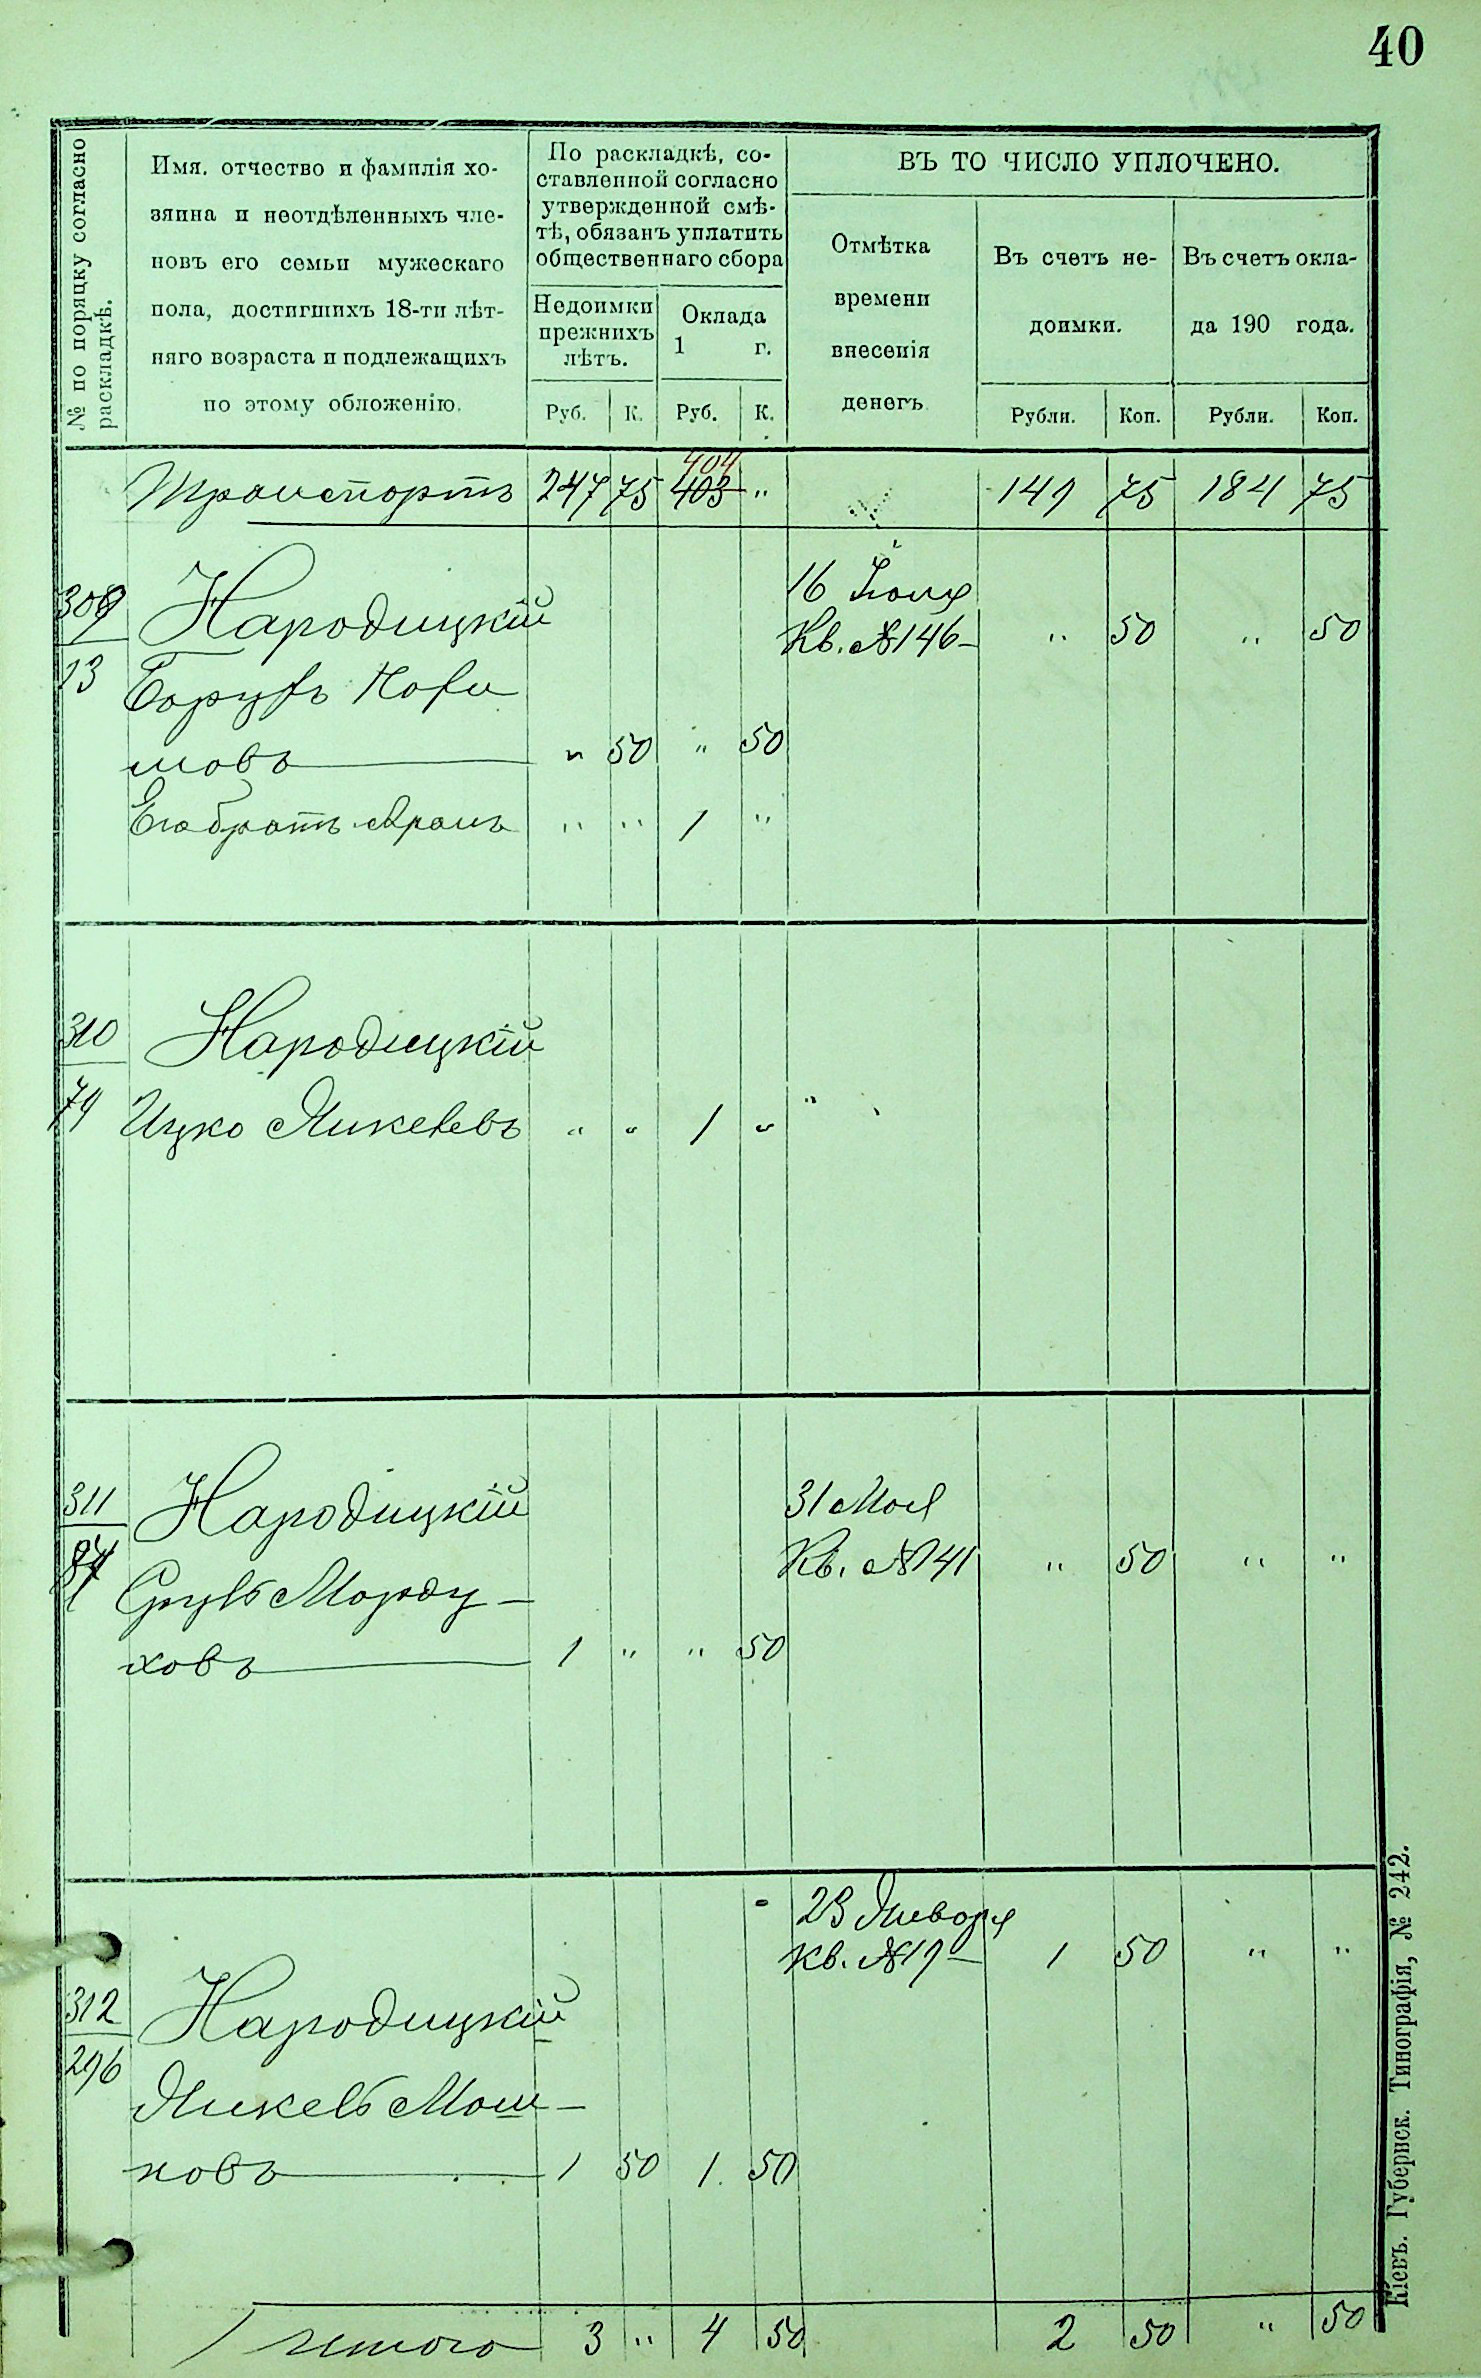 40
№ по порядку согласно
раскладкѣ.
Имя, отчество и фамилія хо-
зяина и неотдѣленныхъ чле-
новъ его семьи мужескаго
пола, достигшихъ 18-ти лѣт-
няго возраста и подлежащихъ
по этому обложенію.
По раскладкѣ, со-
ставленной согласно
утвержденной смѣ-
тѣ, обязанъ уплатить
общественнаго сбора
Недоимки
прежнихъ
лѣтъ.
Оклада
1 г.
Руб. К. Руб. К.
ВЪ ТО ЧИСЛО УПЛОЧЕНО.
Отмѣтка
времени
внесенія
денегъ
Въ счетъ не-
доимки.
Въ счетъ окла-
да 190 года.
Рубли. Коп. Рубли. Коп.
404
Транспортъ 247 75 403 " 149 75 184 75
309 Народицкій 16 Іюля
Кв. №146- " 50 " 50
13 Борухъ
мовъ " 50 " 50
Его братъ Арамъ " " 1 "
310 Народицкій
74 Ицко Янкелевъ " " 1 "
311 Народицкій 31 Мая
Кв. №141 " 50 " "
Сруль Морду-
ховъ 1 " " 50
23 Января
Кв. №17- 1 50 " "
312 Народицкій
296
Янкель Мош-
ковъ 1 50 1 50
Итого 3 " 4 50 2 50 " 50
Кіевъ. Губернск. Типографія, № 242.